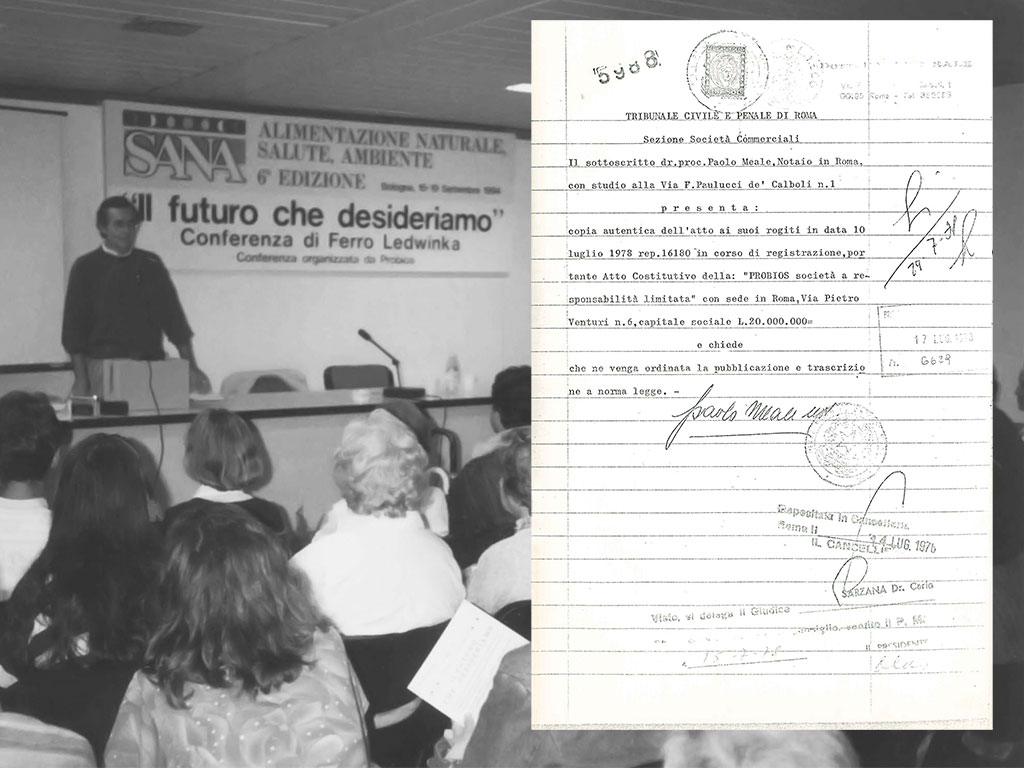 SANA
ALIMENTAZIONE NATURALE,
SALUTE, AMBIENTE
6ª EDIZIONE Bologna, 15-19 Settembre 1994
"Il futuro che desideriamo"
Conferenza di Ferro Ledwinka
Conferenza organizzata da Probios
5988
TRIBUNALE CIVILE E PENALE DI ROMA
Sezione Società Commerciali
Il sottoscritto dr.proc.Paolo Meale,Notaio in Roma,
con studio alla Via F.Paulucci de' Calboli n.1
p r e s e n t a :
copia autentica dell'atto ai suoi rogiti in data 10
luglio 1978 rep.16180 in corso di registrazione,por
tante Atto Costitutivo della: "PROBIOS società a re-
sponsabilità limitata" con sede in Roma,Via Pietro
Venturi n.6,capitale sociale L.20.000.000=
e chiede
che ne venga ordinata la pubblicazione e trascrizio
ne a norma legge. -
29/7.78
17 LUG. 1978
n. 6639
Paolo Meale
Depositata in Cancelleria
Roma li LUG. 1978
IL CANCELLIERE
SARZANA Dr. Carlo
Visto, si delega il Giudice
consiglio, sentito il P. M.
IL PRESIDENTE